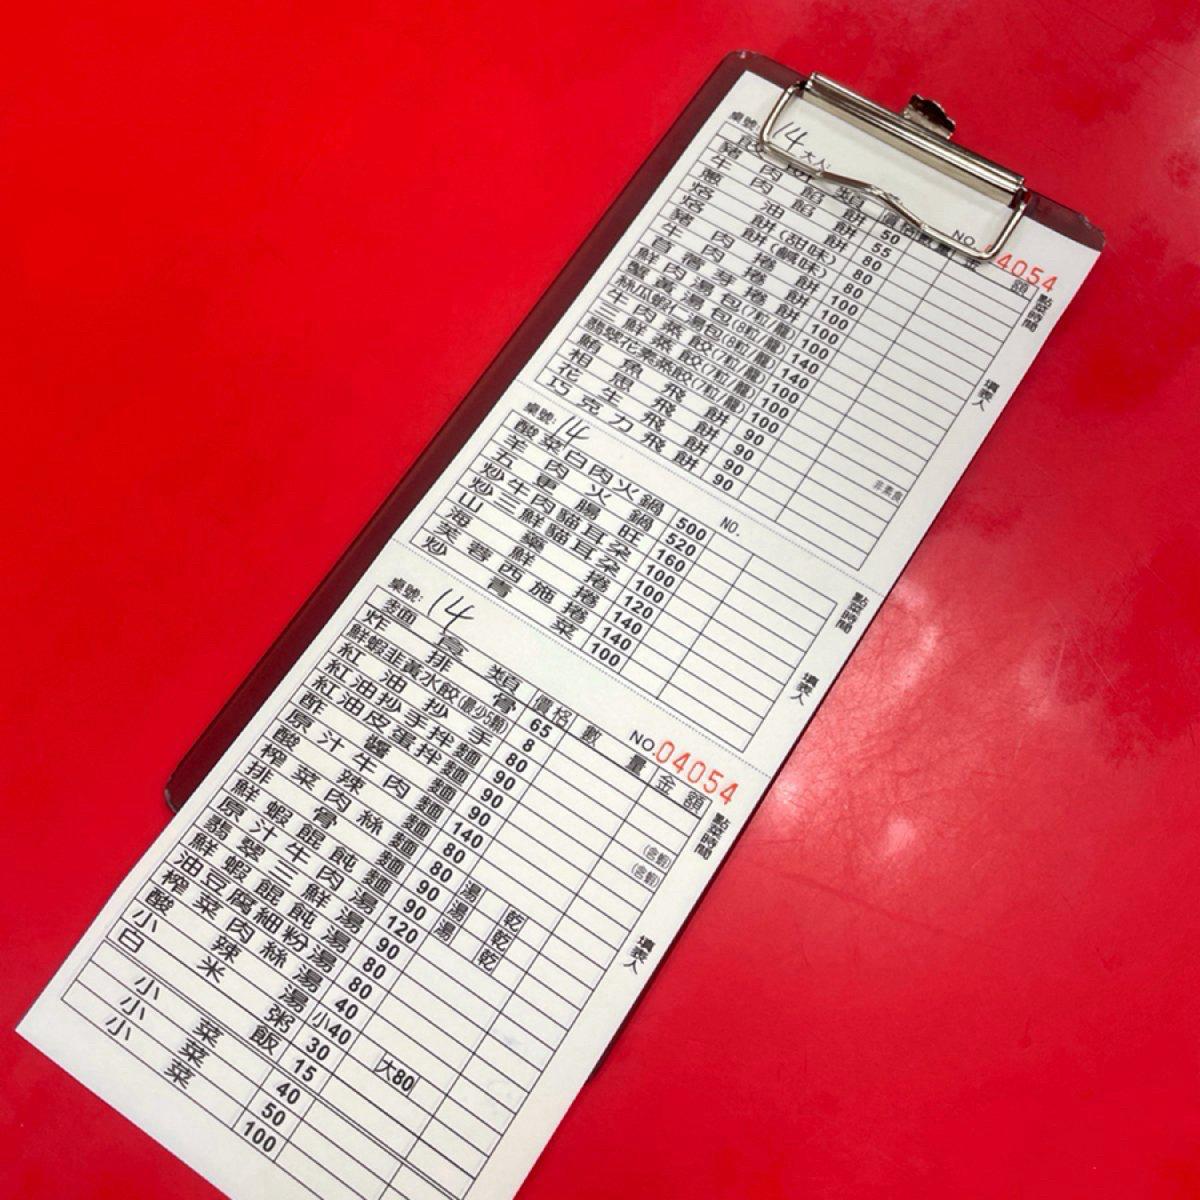 桌號: 14 大人:
NO. 04054
餅類 價格 數量 金額 點菜時間
豬肉餡餅 50
牛肉餡餅 55
蔥油餅 80
烙餅(甜味) 80
烙餅(鹹味) 80
豬肉捲餅 100
牛肉捲餅 100
苜蓿芽捲餅 100
鮮肉湯包(7粒/籠) 100
蟹黃湯包(8粒/籠) 140
絲瓜蝦仁湯包(8粒/籠) 140
牛肉蒸餃(7粒/籠) 100
三鮮蒸餃(7粒/籠) 100
翡翠花素蒸餃(7粒/籠) 100 非素食
鮪魚飛餅
相思飛餅 90
花生飛餅 90
巧克力飛餅 90
填表人
桌號: 14
NO.
點菜時間
酸菜白肉火鍋 500
羊肉火鍋 520
五更腸旺 160
炒牛肉貓耳朵 100
炒三鮮貓耳朵 100
120
海鮮捲 140
芙蓉西施捲 140
炒青菜 100
填表人
桌號: 14
NO. 04054
類 價格 數量 金額 點菜時間
炸排骨 65
鮮蝦韭黃水餃(最少5顆) 8 (含蝦)
紅油抄手 80 (含蝦)
紅油抄手拌麵 90
紅油皮蛋拌麵 90
原汁牛肉麵 140
酸辣麵 80
榨菜肉絲麵 80 湯 乾
排骨麵 90 湯 乾
鮮蝦餛飩麵 90 湯 乾
原汁牛肉湯 120
翡翠三鮮湯 90
鮮蝦餛飩湯 80
油豆腐細粉湯 80
榨菜肉絲湯 40
酸辣湯 小40 大80
小米粥 30
白飯 15
小菜 40
小菜 50
小菜 100
填表人